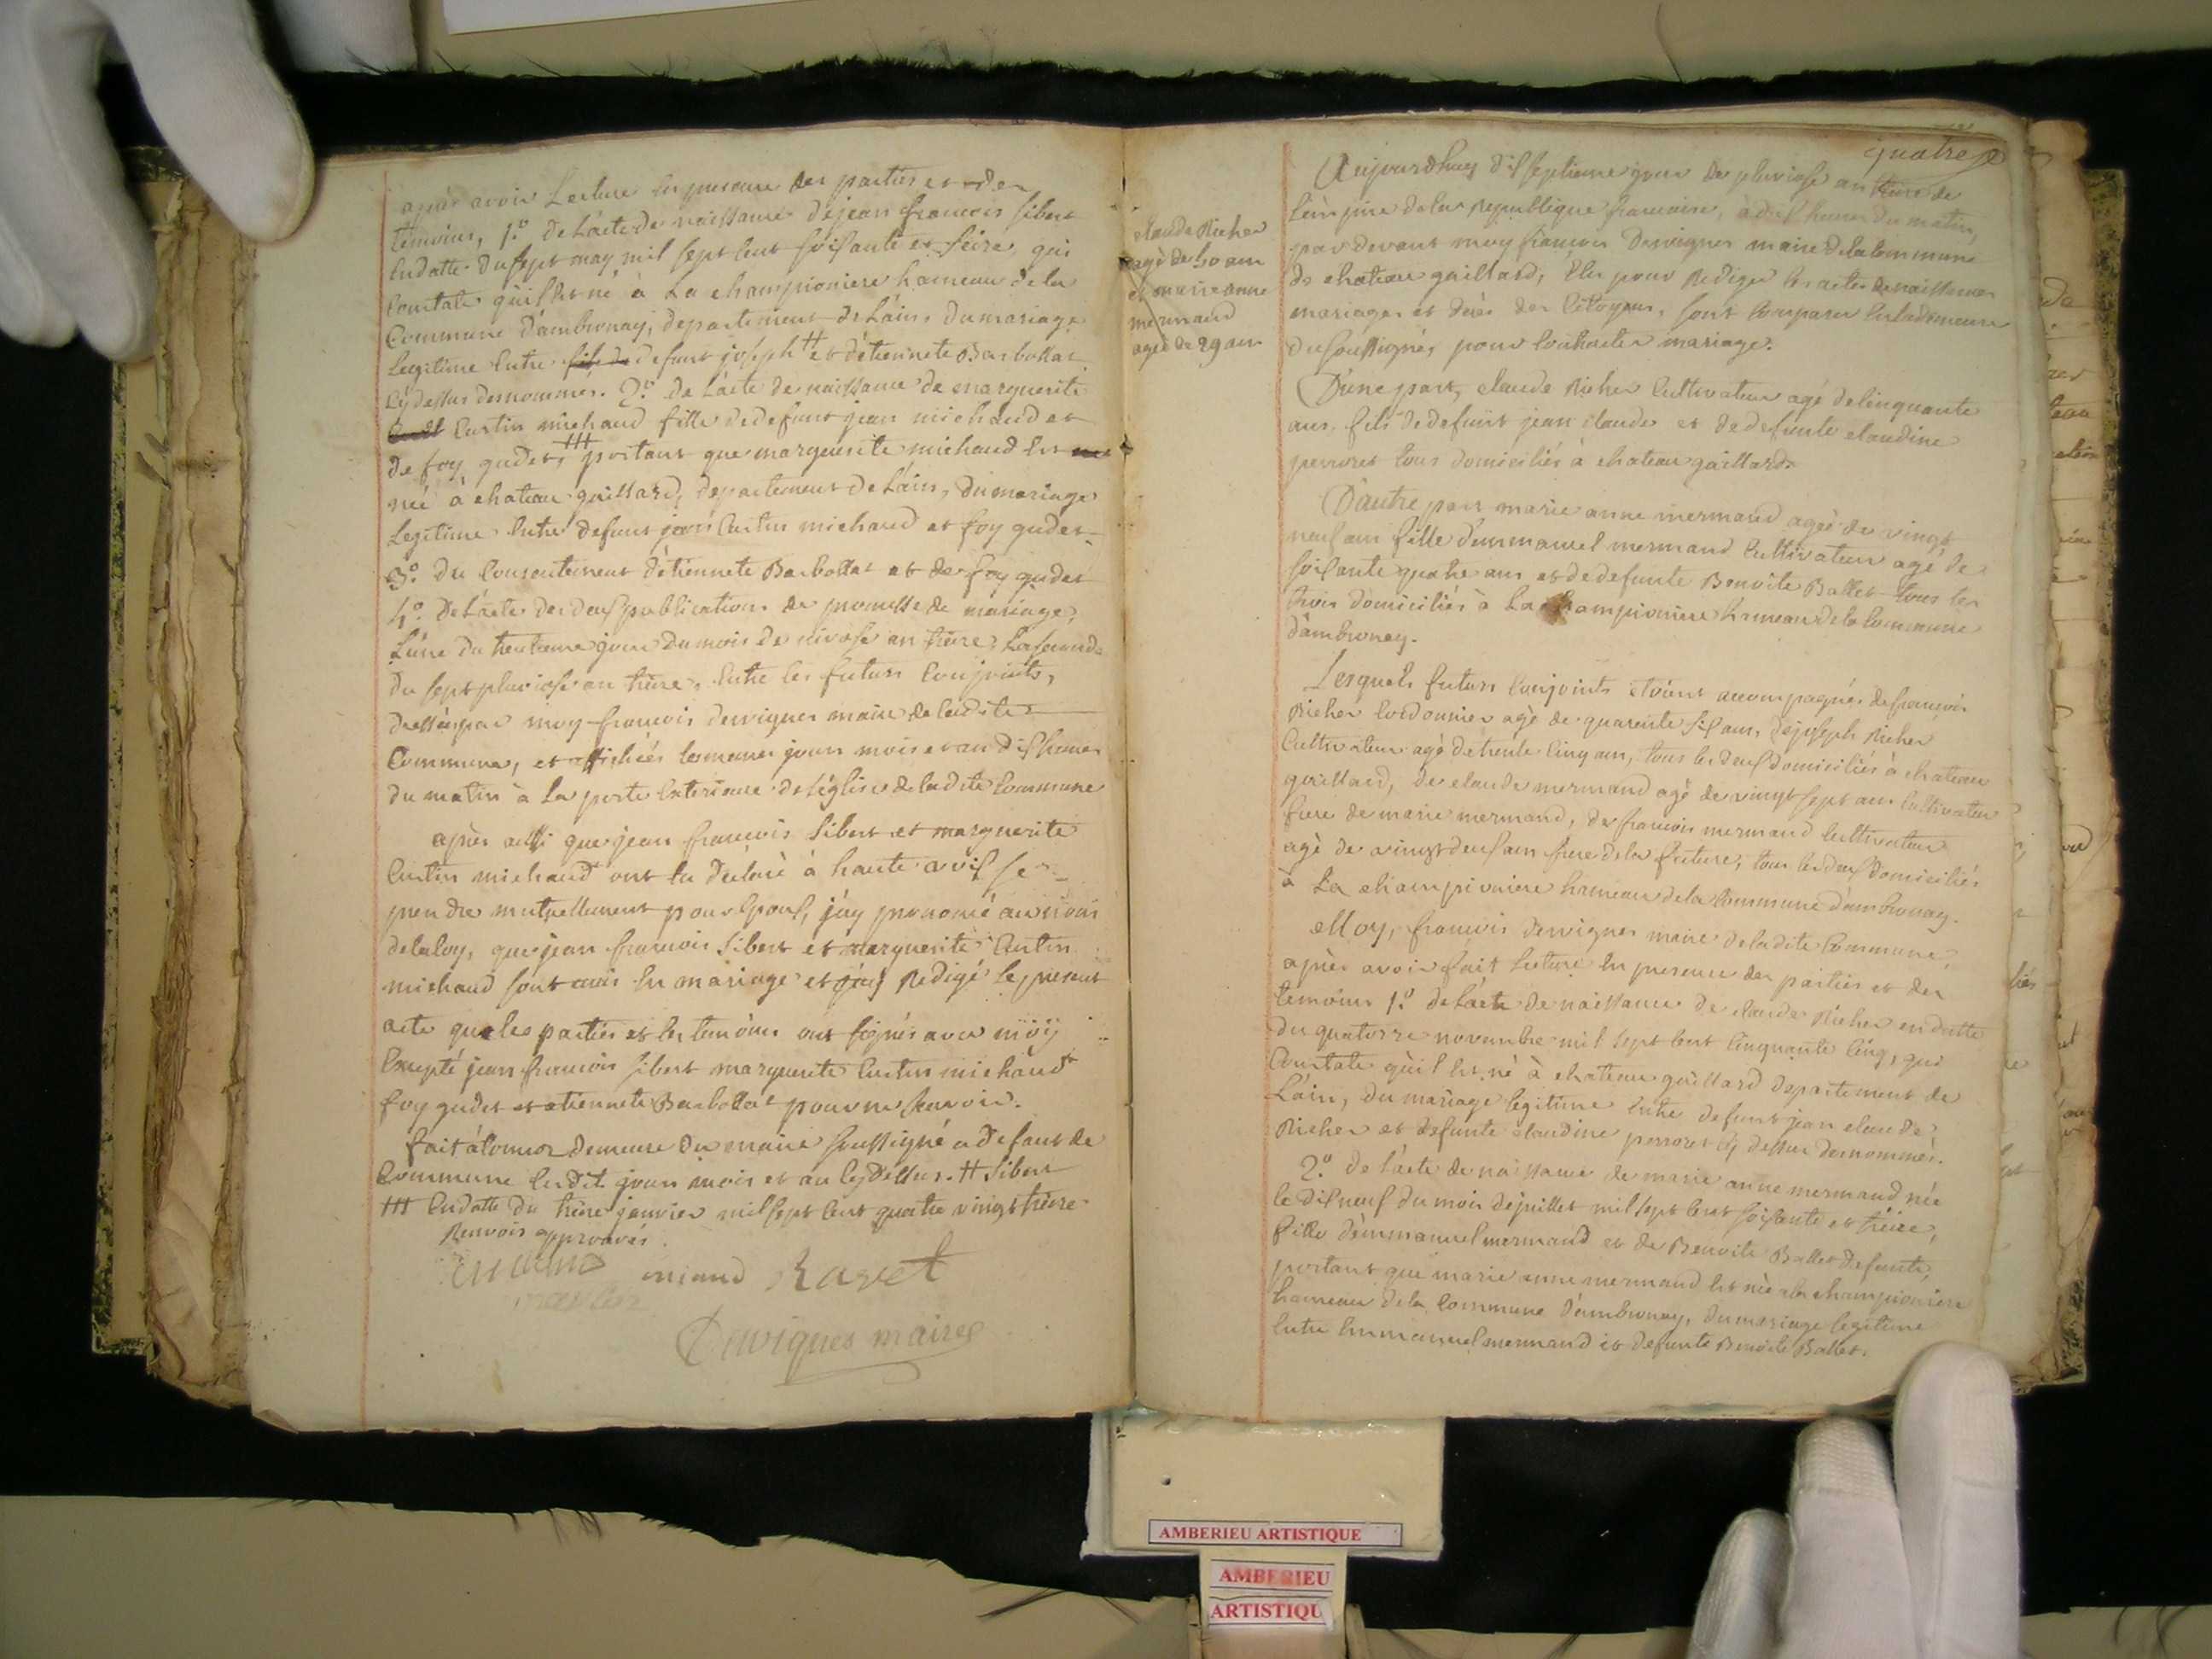 après avoir Lecture en presence des parties et des
témoins, 1.º De L'acte de naissance de jean francois Sibert
en datte du sept may mil sept cent soisante et seize, qui
Constate qu'il est né à La championiere hameau de la
Commune d'ambronay, departement de L'ain, du mariage
Legitime entre fils de defunt joseph H et d'étiennete Barbollat
cy dessus denommés. 2.º de L'acte de naissance de marguerite
Curtin michaud fille de defunt jean michaud et
de foy gudet, HH portant que marguerite michaud est
née à chateau gaillard, departement de L'ain, du mariage
Legitime entre defunt jean Curtin michaud et foy gudet
3.º du Consentement d'étiennete Barbollat et de foy gudet
4.º De L'acte des deux publications de promesse de mariage,
L'une du trentieme jour du mois de nivose an treize, La seconde
du sept pluviose an treize, entre les futurs Conjoints,
dressées par moy francois dervignes maire de ladite
Commune, et affichées les memes jours mois et an dix heures
du matin à La porte exterieure de l'église de ladite Commune
après aussi que jean francois Sibert et marguerite
Curtin michaud ont eu déclaré à haute avoix se
prendre mutuellement pour Epoux, j'ay prononcé au nom
de la loy, que jean francois Sibert et marguerite Curtin
michaud sont unis en mariage et j'ay Redigé le present
acte que les parties et les temoins ont signés avec moÿ
Excepté jean francois Sibert marguerite Curtin michaud
foy gudet et etiennete Barbollat pour ne scavoir.
fait à la demeure du maire soussigné a defaut de
Commune Les dit jour mois et an cy dessus. H Sibert
HH En datte du treize janvier mil sept cent quatre vingt treize
Renvois approuvés.
miand Ravet
Dervignes maire
quatre
claude Richer
agé de 50 ans
et marie anne
mermand
agée de 29 ans
Aujourdhuy dix septieme jour de pluviose an treize de
L'empire de la Republique francaise, à dix heures du matin,
par devant moy francois Dervignes maire de la Commune
de chateau gaillard, Elu pour Rediger les actes de naissances
mariages et decès des Citoyens, sont Comparu En la demeure
du soussigné, pour Contracter mariage.
D'une part, claude Richer Cultivateur agé de Cinquante
ans. fils de defunt jean claude et de defunte claudine
perroset tous domiciliés à chateau gaillard.
D'autre part marie anne mermand agée de vingt
neuf ans fille d'emmanuel mermand Cultivateur agé de
soisante quatre ans et de defunte Benoite Ballet tous les
trois domiciliés à La championiere hameau de la Commune
d'ambronay.
Lesquels futurs Conjoints etoient accompagnés de francois
Richer Cordonnier agé de quarente six ans, de joseph Richer
Cultivateur agé de trente Cinq ans, tous les deux domiciliés à chateau
gaillard, de claude mermand agé de vingt sept ans Cultivateur
frere de marie mermand, de francois mermand Cultivateur
agé de vingt deux ans frere de la future, tous les deux domiciliés
à La championiere hameau de la Commune d'ambronay.
Moy, francois dervignes maire de ladite Commune,
après avoir fait Lecture En presence des parties et des
temoins 1.º de L'acte de naissance de claude Richer en datte
du quatorze novembre mil sept cent Cinquante Cinq, qui
Constate qu'il est né à chateau gaillard departement de
L'ain, du mariage legitime entre defunt jean claude
Richer et defunte claudine perroset cy dessus denommés.
2.º de l'acte de naissance de marie anne mermand née
le dixneuf du mois de juillet mil sept cent soisante et treize,
fille d'emmanuel mermand et de Benoite Ballet defunte,
portant que marie anne mermand est née à la championiere
hameau de la Commune d'ambronay, du mariage legitime
Entre Emmanuel mermand et defunte Benoite Ballet.
AMBERIEU ARTISTIQUE
AMBERIEU
ARTISTIQU